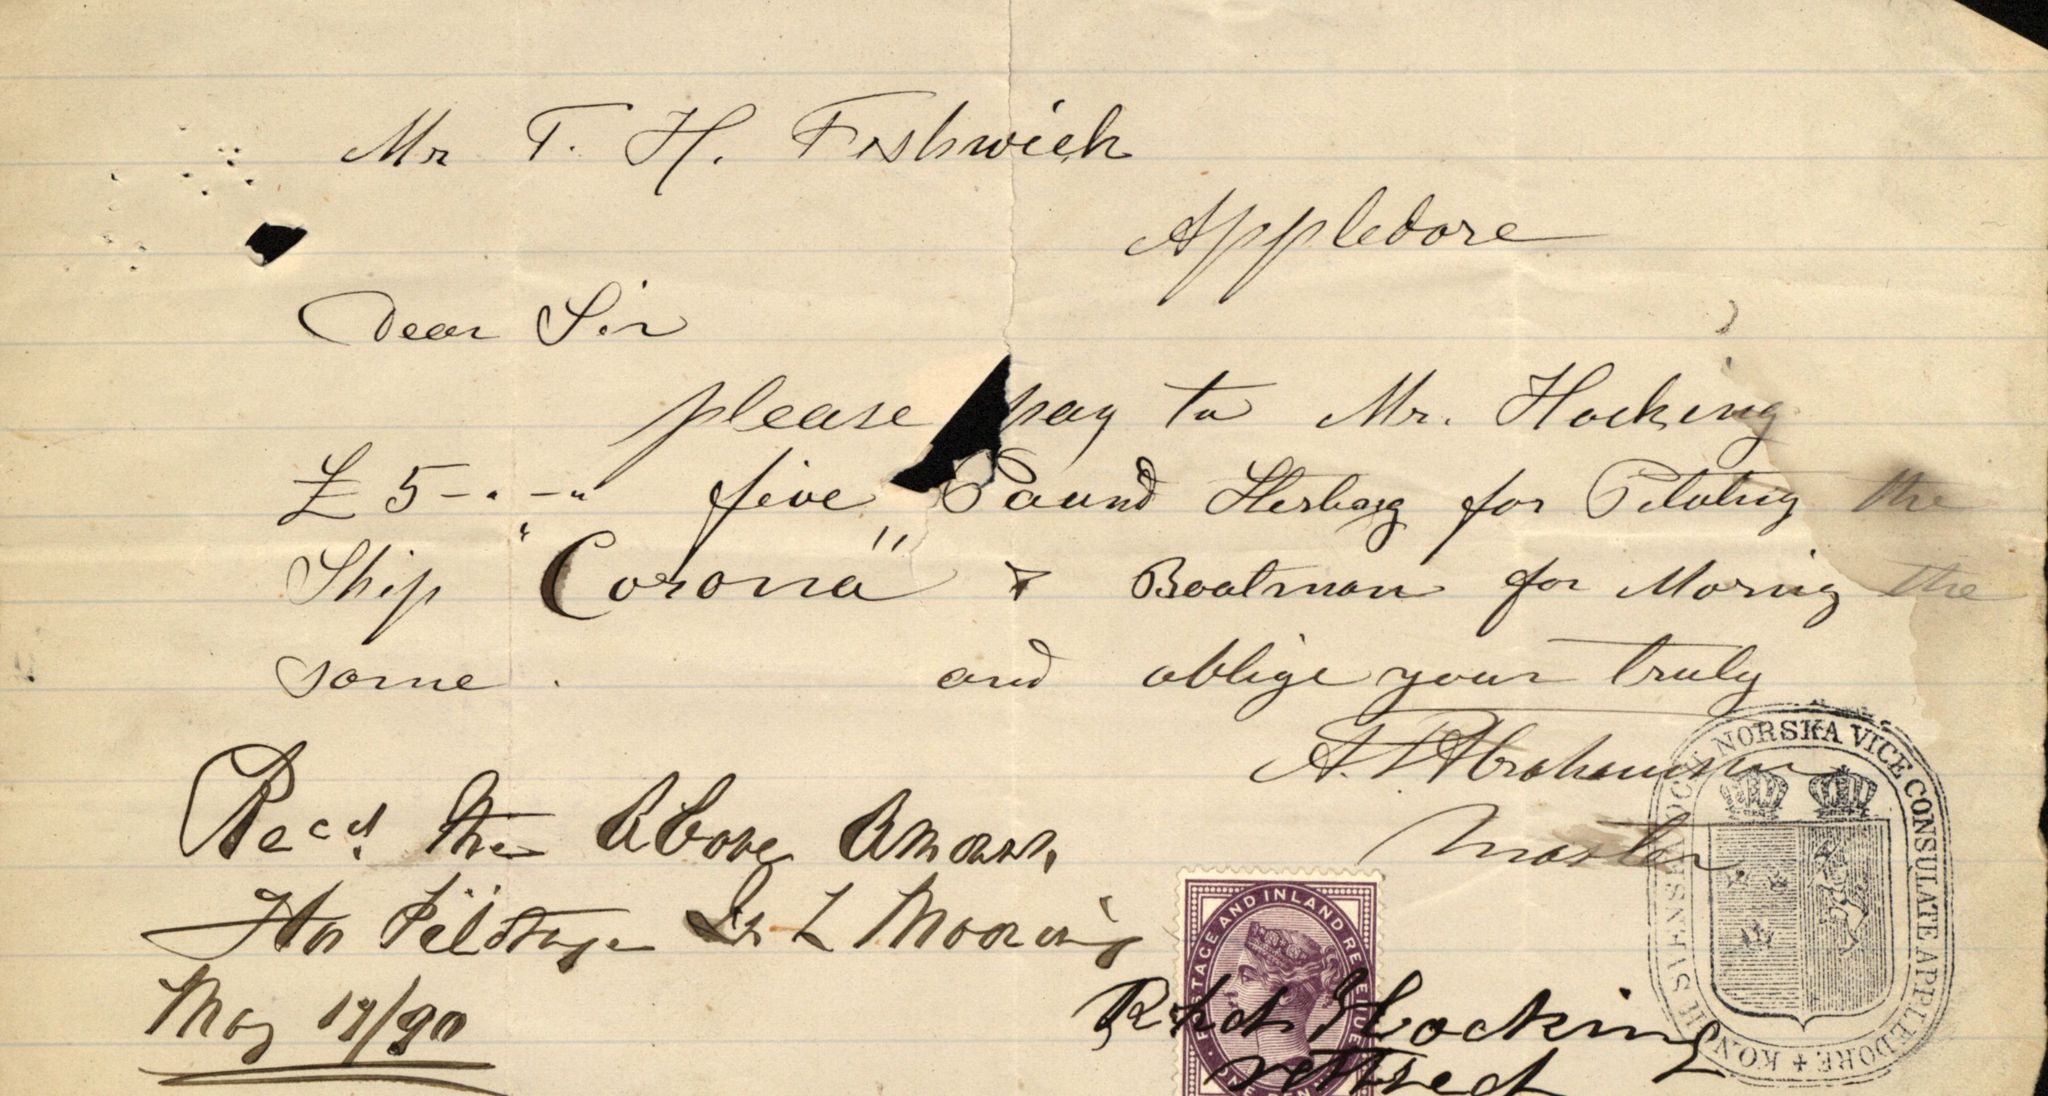 Mr T. H. Fishwick
Appledore
Dear Sir
please pay to Mr. Hocking
£ 5 - " - " five Pound Sterling for Piloting the
Ship "Corona" & Boatman for Moring the
same. and oblige your truly
A. P. Abrahamson
Master
Recd. the Above Amount
For Pilotage In & Mooring
May 19/90
Richd Hocking
POSTAGE AND INLAND REVENUE
KON. SVENSK OCH NORSKA VICE CONSULATE APPLEDORE